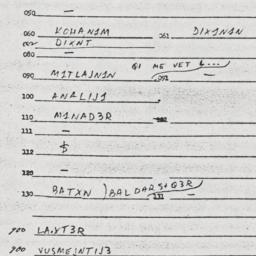 050 —
060 KOHANIM 061 DIXININ
062 DIXNT
080 —
QI ME VET L...
090 MITLAJNIN 092 —
100 ANALIJI
110 MINAD3R
111 —
112 $
120 —
130 BATXN )BALDARSHQ3R 131 —
900 LA.YT3R
900 VUSMEJNTIJ3